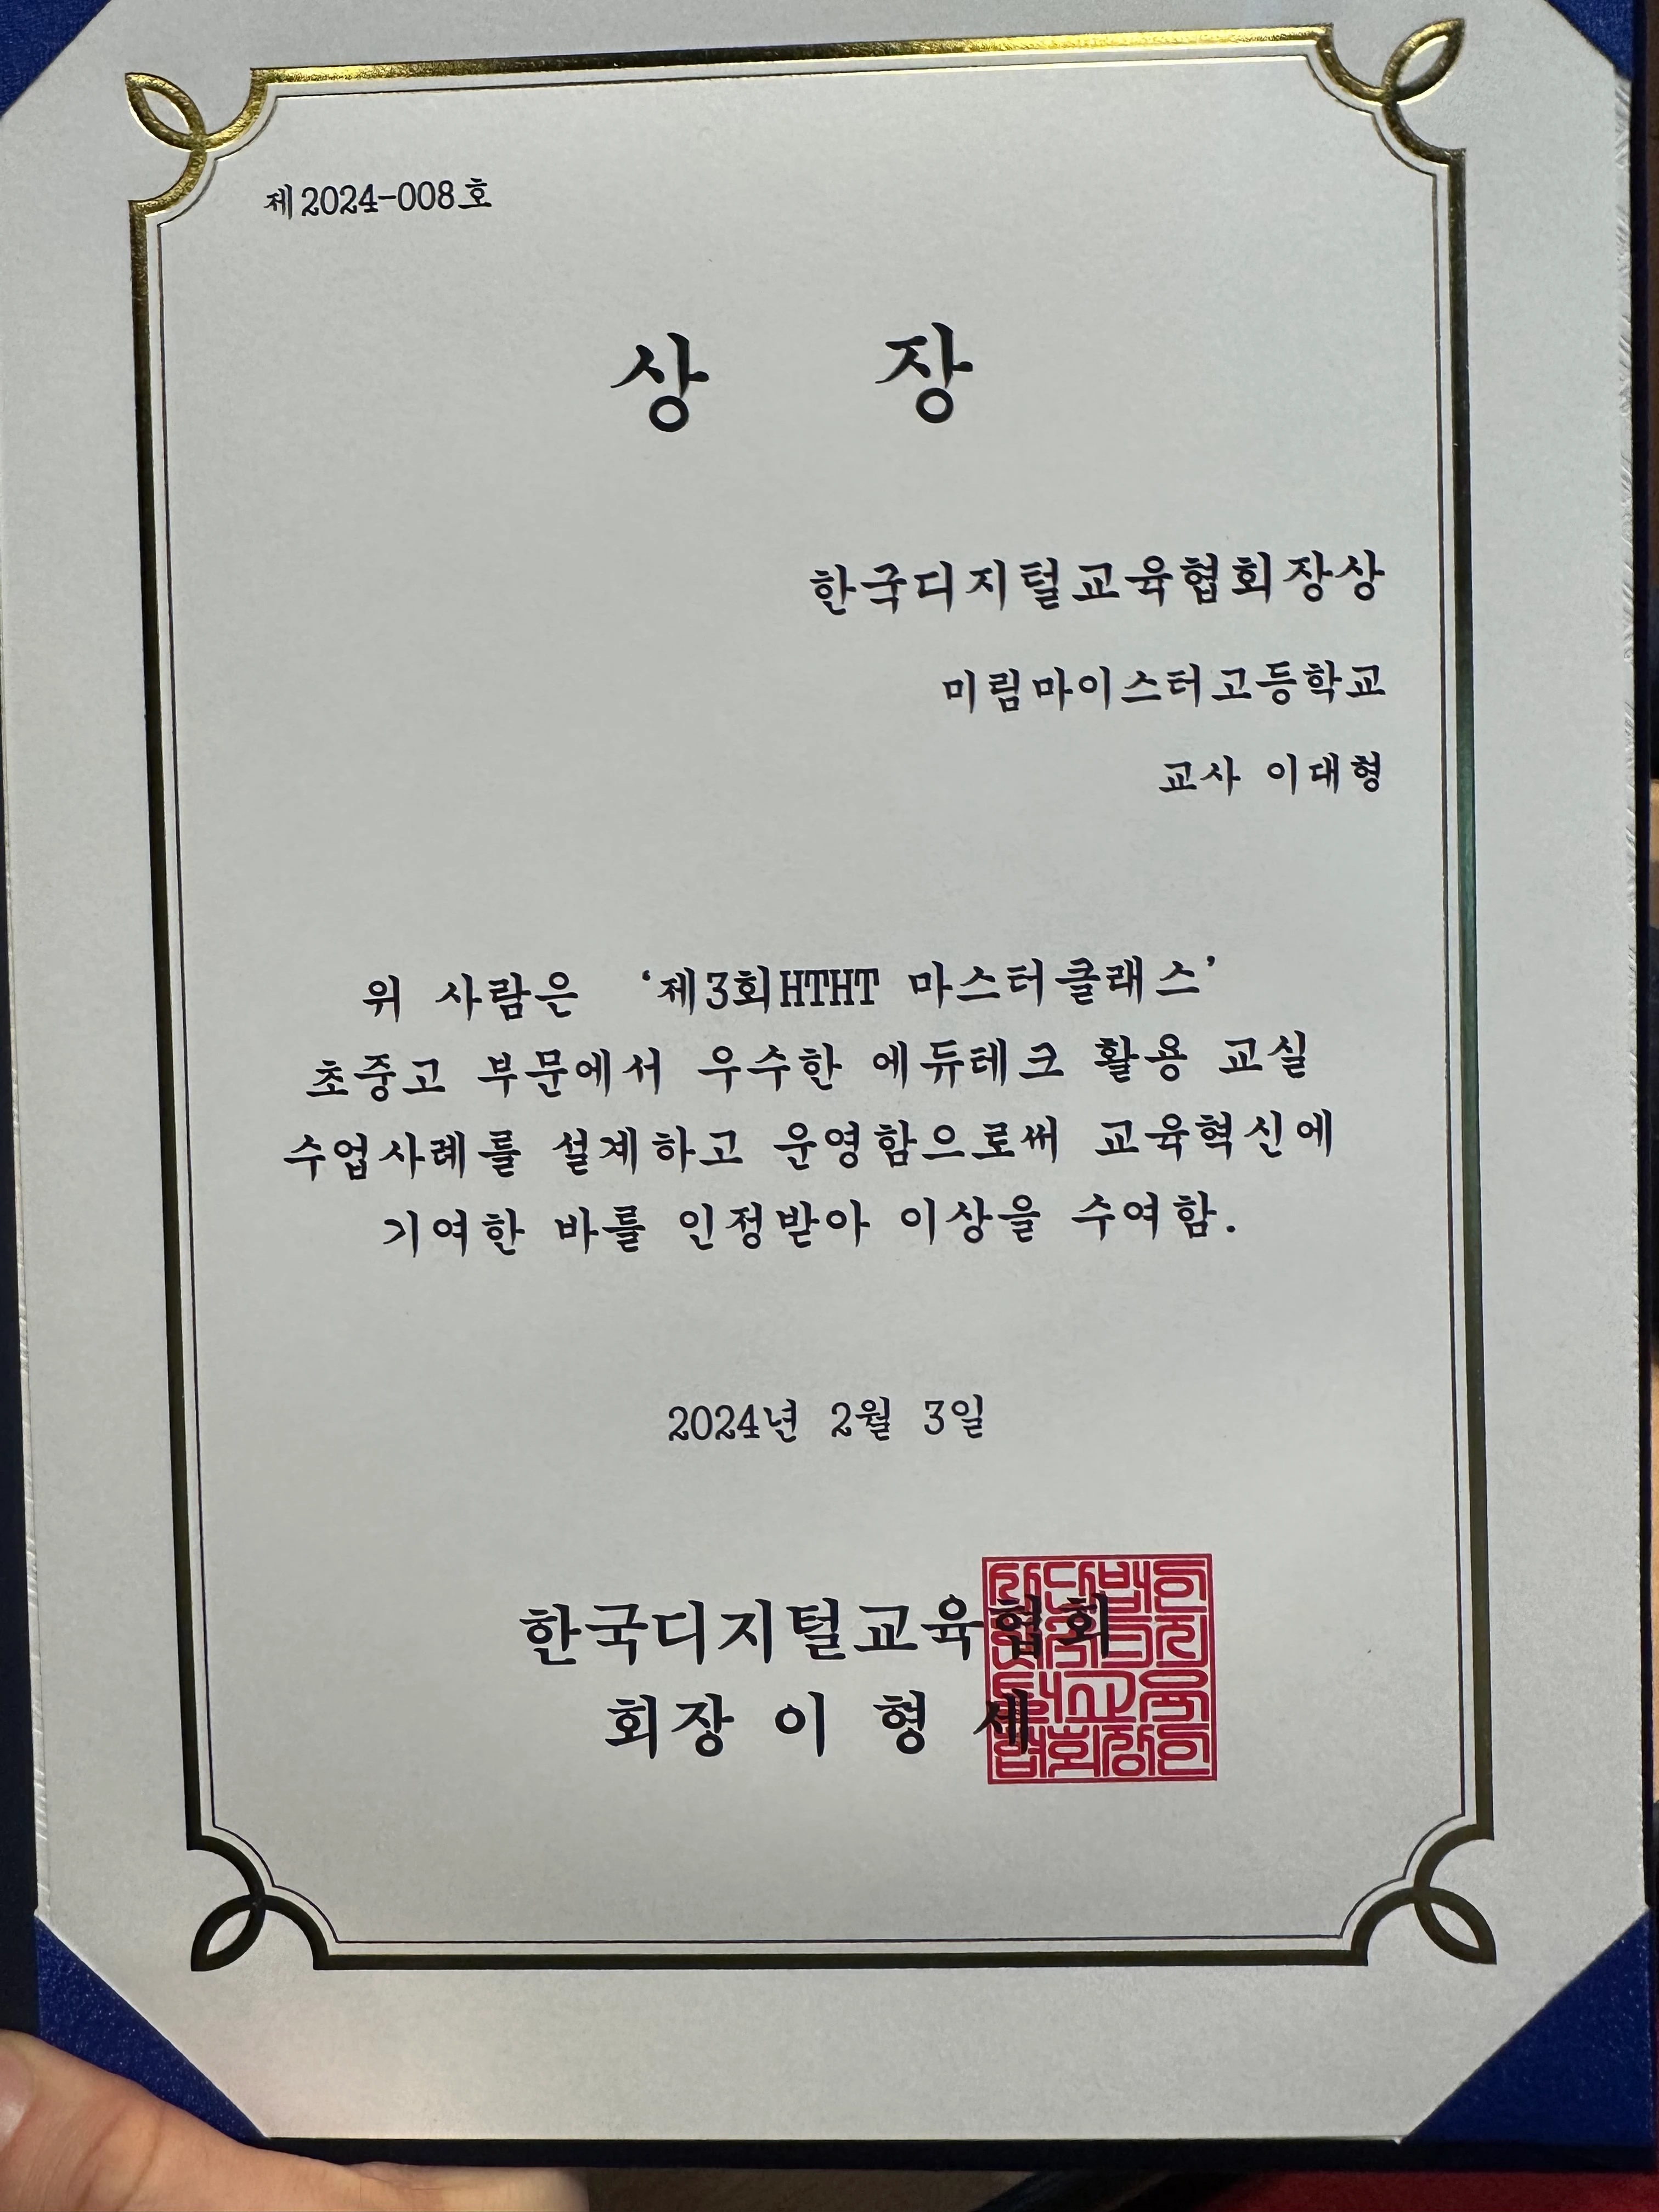 제2024-008호
상 장
한국디지털교육협회장상
미림마이스터고등학교
교사 이대형
위 사람은 '제3회HTHT 마스터클래스'
초중고 부문에서 우수한 에듀테크 활용 교실
수업사례를 설계하고 운영함으로써 교육혁신에
기여한 바를 인정받아 이상을 수여함.
2024년 2월 3일
한국디지털교육협회
회장 이 형 세
사단법인
한국디지
털교육
협회장인